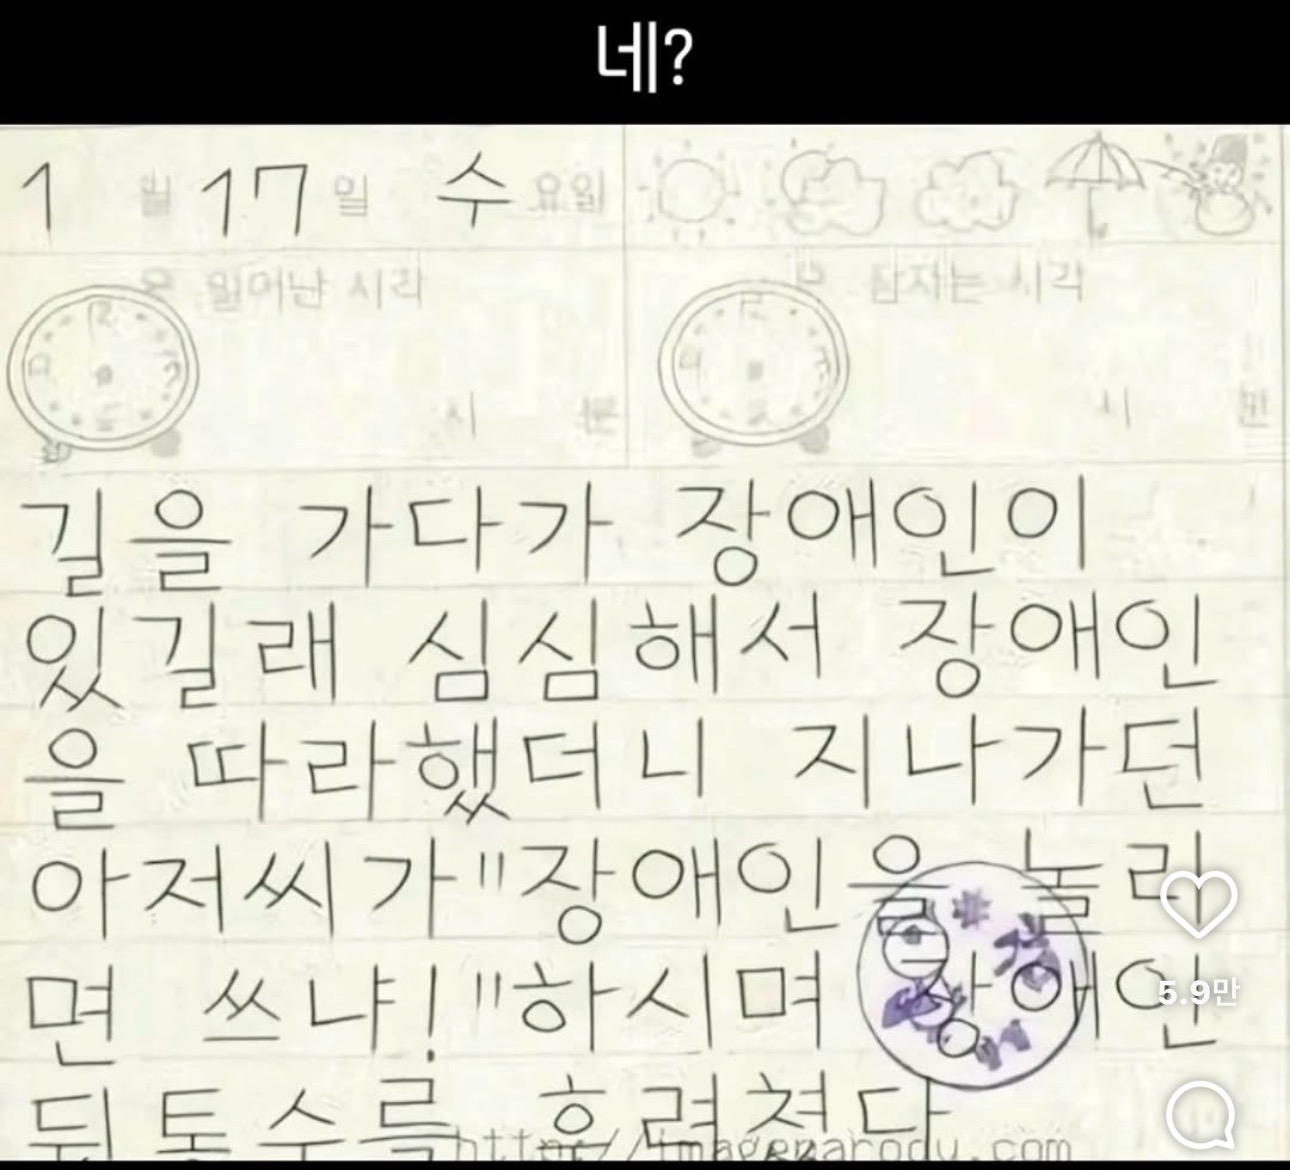 네?
1 월 17 일 수 요일
일어난 시각 잠자는 시각
시 분 시 분
길을 가다가 장애인이
있길래 심심해서 장애인
을 따라했더니 지나가던
아저씨가 "장애인을 놀리
면 쓰냐!" 하시며 장애인
5.9만
뒤통수를 후려쳤다
http://imageparody.com